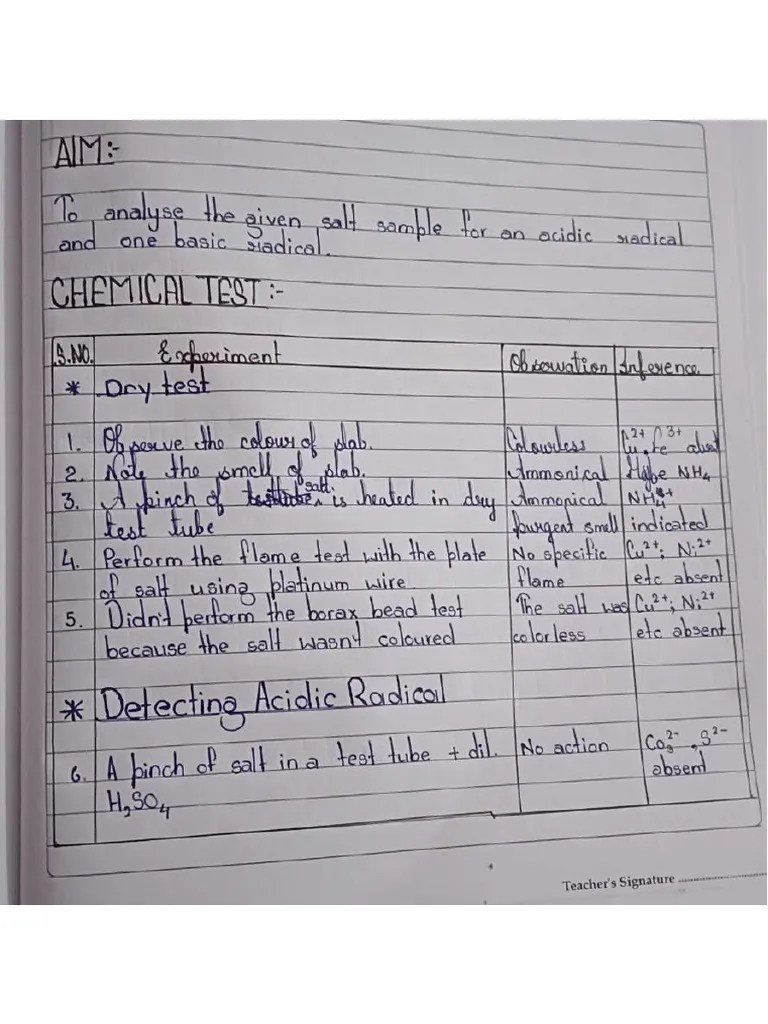 AIM:-
To analyse the given salt sample for an acidic radical
and one basic radical.
CHEMICAL TEST:-
S.NO. Experiment Observation Inference
* Dry test
1. Observe the colour of slab. Colourless Cu²⁺, Fe³⁺ absent
2. Note the smell of slab. Ammonical NH₄
3. A pinch of salt is heated in dry Ammonical NH₄⁺
test tube smell indicated
4. Perform the flame test with the plate No specific Cu²⁺; Ni²⁺
of salt using platinum wire flame etc absent
5. Didn't perform the borax bead test The salt was Cu²⁺; Ni²⁺
because the salt wasn't coloured colorless etc absent
* Detecting Acidic Radical
6. A pinch of salt in a test tube + dil. No action CO₃²⁻, S²⁻
H₂SO₄ absent
Teacher's Signature